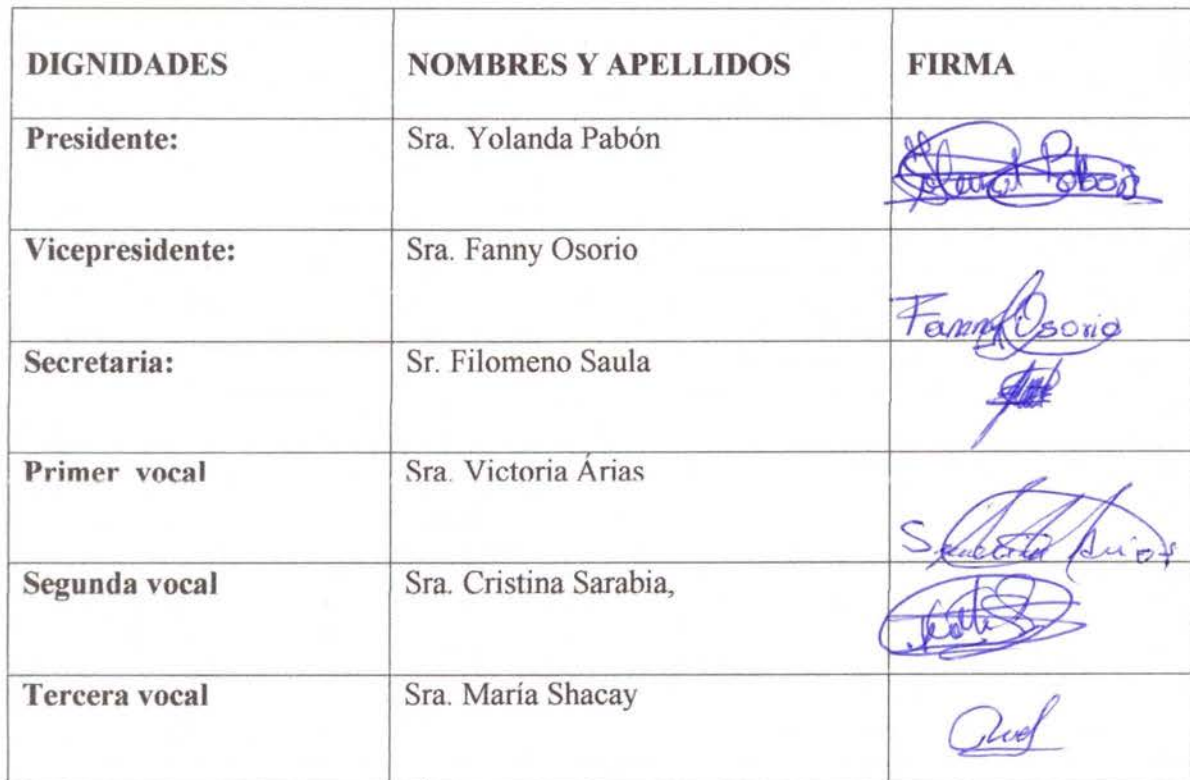 DIGNIDADES NOMBRES Y APELLIDOS FIRMA
Presidente: Sra. Yolanda Pabón
Vicepresidente: Sra. Fanny Osorio Fanny Osorio
Secretaria: Sr. Filomeno Saula
Primer vocal Sra. Victoria Árias
Segunda vocal Sra. Cristina Sarabia,
Tercera vocal Sra. María Shacay